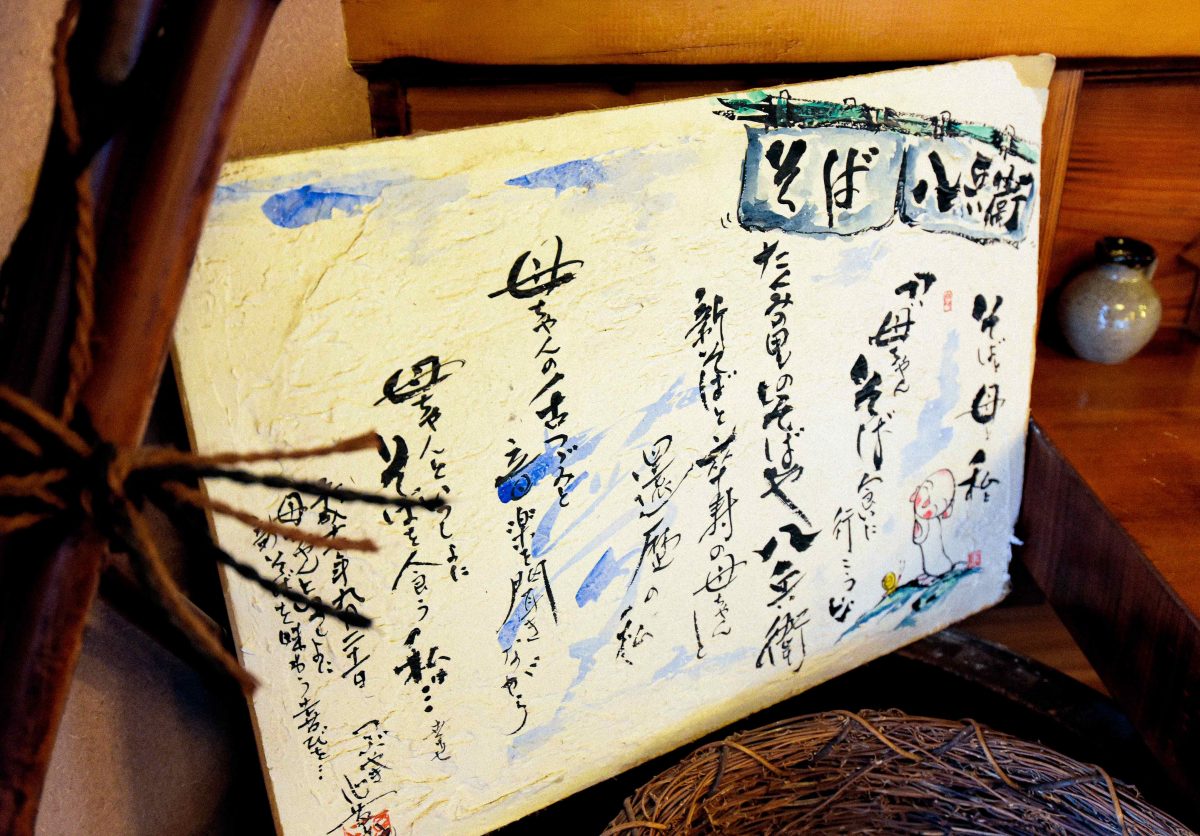 そば 八兵衛
そばと母と私
母ちゃん
そば食いに
行こうよ
たくみの里のそばや八兵衛
新そばと卒寿の母ちゃんと
還暦の私
母ちゃんの舌つづみと
音楽を聞きながら
母ちゃんといっしょに
そばを食う私は…
母ちゃんといっしょに
新そばを味わう喜びを…